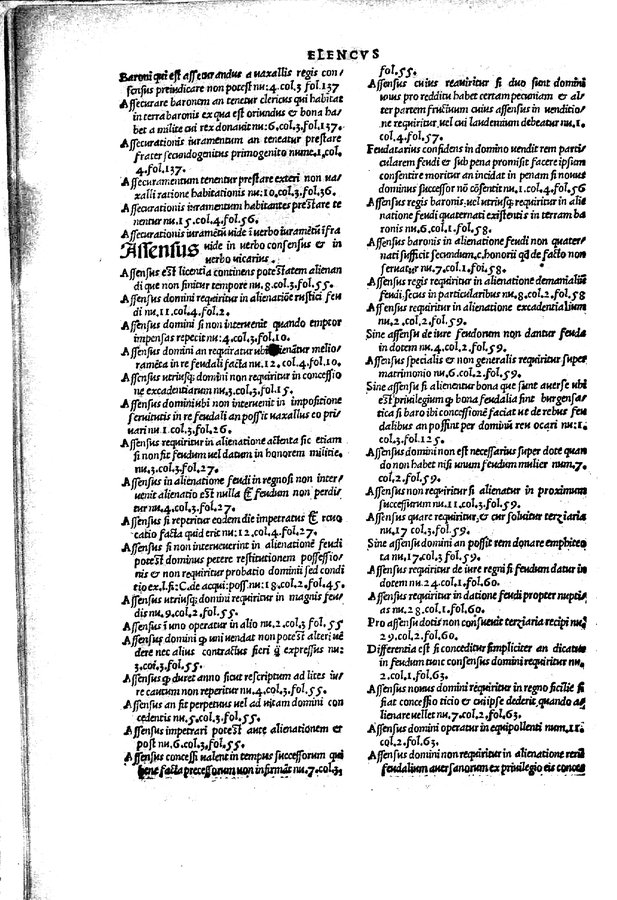 ELENCVS
Baroni qui est assecurandus a uaxallis regis con/
sensus preiudicare non potest nu:4.col.3 fol.137
Assecurare baronem an tenetur clericus qui habitat
in terra baronis ex qua est oriundus & bona ha/
bet a milite cui rex donauit nu:6.col.3.fol.137.
Assecurationis iuramentum an teneatur prestare
frater secundogenitus primogenito nume.1.col.
4.fol.137.
Assecuramentum tenentur prestare exteri non ua/
xalli ratione habitationis nu:10.col.3.fol.36.
Assecurationis iuramentum habitantes prestare te
nentur nu.15.col.4.fol.56.
Assecurationis iuramētū uide ī uerbo iuramētū īfra
Assensus uide in uerbo consensus & in
uerbo uicarius.
Assensus est licentia continens potestatem alienan
di que non finitur tempore nu.8.col.3.fol.55.
Assensus domini requiritur in alienatiōe rustici feu
di nu.11.col.4.fol.2.
Assensus domini si non interuenit quando emptor
impensas repetit nu:4.col.3.fol.10.
Assensus domini an requiratur ubi alienātur melio/
ramēta in re feudali facta nu.12.col.4.fol.10.
Assensus utriusq; domini non requiritur in concessio
ne excadentiarum nu.3.col.3.fol.15.
Assensus domini ubi non interuenit in impositione
seruitutis in re feudali an possit uaxallus eo pri/
uari nu.1.col.3.fol.26.
Assensus requiritur in alienatione actenta sic etiam
si non fit feudum uel datum in honorem militie.
nu.3.col.3.fol.27.
Assensus in alienatione feudi in regno si non inter/
uenit alienatio est nulla & feudum non perdi
tur nu.4.col.3.fol.27.
Assensus si reperitur eodem die impetratus & reuo
catio facta quid erit nu:12.col.4.fol.27.
Assensus si non interuenerint in alienationē feudi
potest dominus petere restitutionem possessio/
nis & non requiritur probatio dominii sed condi
tio ex.l.si:C.de acqui:poss:nu:18.col.2.fol.45.
Assensus utriusq; domini requiritur in magnis feu/
dis nu.9.col.2.fol.55.
Assensus ī uno operatur in alio nu.2.col.3 fol.55
Assensus domini ꝙ uni uendat non potest alteri uē
dere nec alius contractus fieri ꝙ expressus nu:
3.col.3.fol.55.
Assensus ꝙ duret anno sicut rescriptum ad lites iu/
re cautum non reperitur nu.4.col.3.fol.55.
Assensus an sit perpetuus uel ad uitam domini con
cedentis nu.5.col.3.fol.55.
Assensus impetrari potest ante alienationem &
post nu.6.col.3.fol.55.
Assensus concessi ualent in tempus successorum qui
bene facta precessorum non infirmāt nu.7.col.3.
fol.55.
Assensus cuius requiritur si duo sunt domini
unus pro redditu habet certam pecuniam & al/
ter partem fructuum cuius assensus in uenditio/
ne requiritur uel cui laudemium debeatur nu.1.
col.4.fol.57.
Feudatarius confidens in domino uendit rem parti/
cularem feudi & sub pena promisit facere ipsum
consentire moritur an incidat in penam si nouus
dominus successor nō cōsentit nu.1.col.4.fol.56
Assensus regis baronis uel utriusq; requiritur in alie
natione feudi quaternati existentis in terram ba
ronis nu.6.col.1.fol.58.
Assensus baronis in alienatione feudi non quater/
nati sufficit secundum.c.honorii qđ de facto non
seruatur nu.7.col.1.fol.58.
Assensus regis requiritur in alienatione demanialiū
feudi.secus in particularibus nu.8.col.2.fol.58
Assensus requiritur in alienatione excadentialium
nu.2.col.2.fol.59.
Sine assensu de iure feudorum non dantur feuda
in dotem nu.4.col.2.fol.59.
Assensus specialis & non generalis requiritur super
matrimonio nu.6.col.2.fol.59.
Sine assensu si alienentur bona que sunt auerse ubi
est priuilegium ꝙ bona feudalia sint burgensa/
tica si baro ibi concessionē faciat ut de rebus feu
dalibus an possint per dominū reu ocari nu:1.
col.3.fol.125.
Assensus domini non est necessarius super dote quan
do non habet nisi unum feudum mulier num.7.
col.2.fol.59.
Assensus non requiritur si alienatur in proximum
successurum nu.11.col.3.fol.59.
Assensus quare requiritur,& cur soluitur terziaria
nu.17 col.3.fol.59.
Sine assensu domini an possit rem donare emphiteo
ta nu,17.col,3 fol.59.
Assensus requiritur de iure regni si feudum datur in
dotem nu.24.col.1.fol.60.
Assensus requiritur in datione feudi propter nuptias
as nu.28.col.1.fol.60.
Pro assensu dotis non consueuit terziaria recipi nu,
29.col.2.fol.60.
Differentia est si conceditur simpliciter an dicatur
in feudum tunc consensus domini requiritur nu,
2.col,1,fol.63.
Assensus nouus domini requiritur in regno sicilie si
fiat concessio ticio & cui ipse dederit quando a/
lienare uellet nu.7.col.2,fol,63.
Assensus domini operatur in equipollenti num.11.
col.2.fol.63.
Assensus domini non requiritur in alienatione rerum
feudalium auersanorum ex priuilegio eis conces